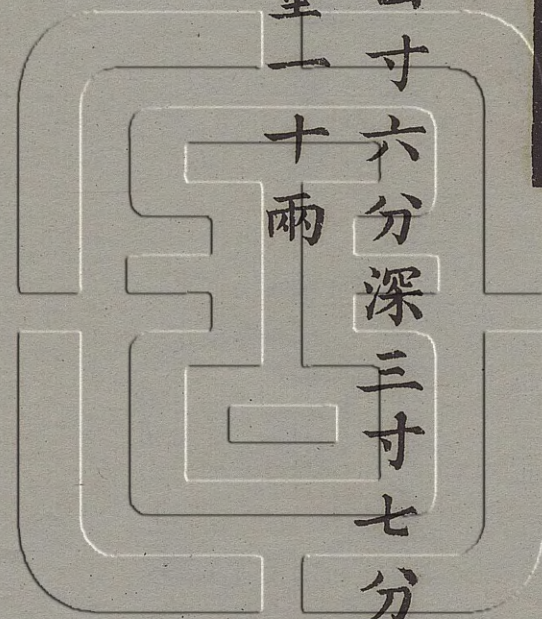 寸六分深三寸七分
一十兩